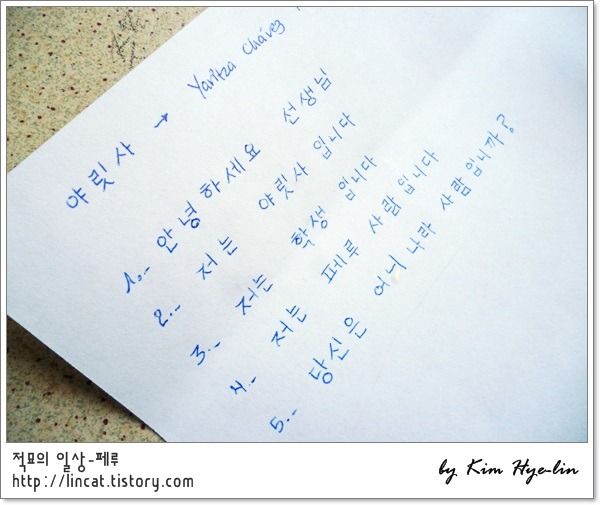 야릿사 → Yaritza Chávez
1.- 안녕하세요 선생님
2.- 저는 야릿사 입니다
3.- 저는 학생 입니다
4.- 저는 페루 사람입니다
5.- 당신은 어니 나라 사람입니까?
적묘의 일상-페루
by Kim Hye-lin
http://lincat.tistory.com